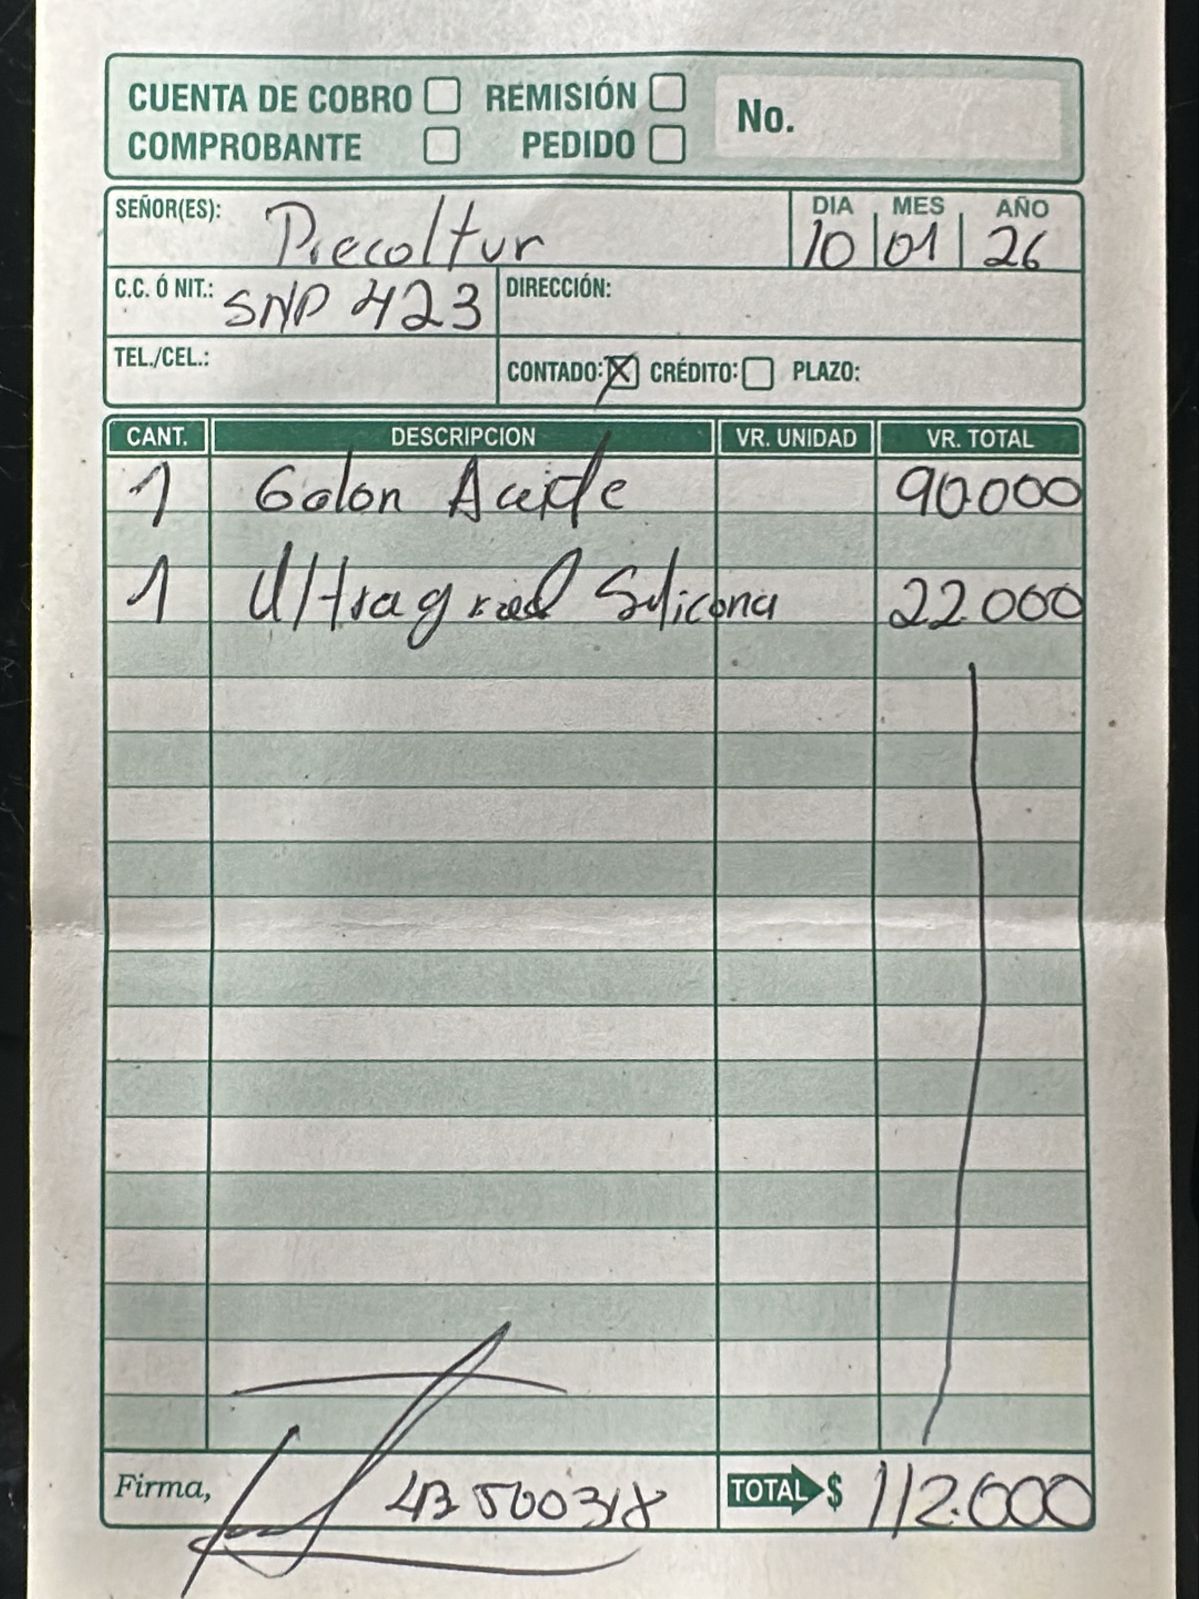 CUENTA DE COBRO REMISIÓN No.
COMPROBANTE PEDIDO
SEÑOR(ES): Precoltur DIA MES AÑO
10 01 26
C.C. Ó NIT.: SNP 423 DIRECCIÓN:
TEL./CEL.: CONTADO: X CRÉDITO: PLAZO:
CANT. DESCRIPCION VR. UNIDAD VR. TOTAL
1 Galon Aceite 90.000
1 Ultragread Silicona 22.000
Firma, TOTAL $ 112.000